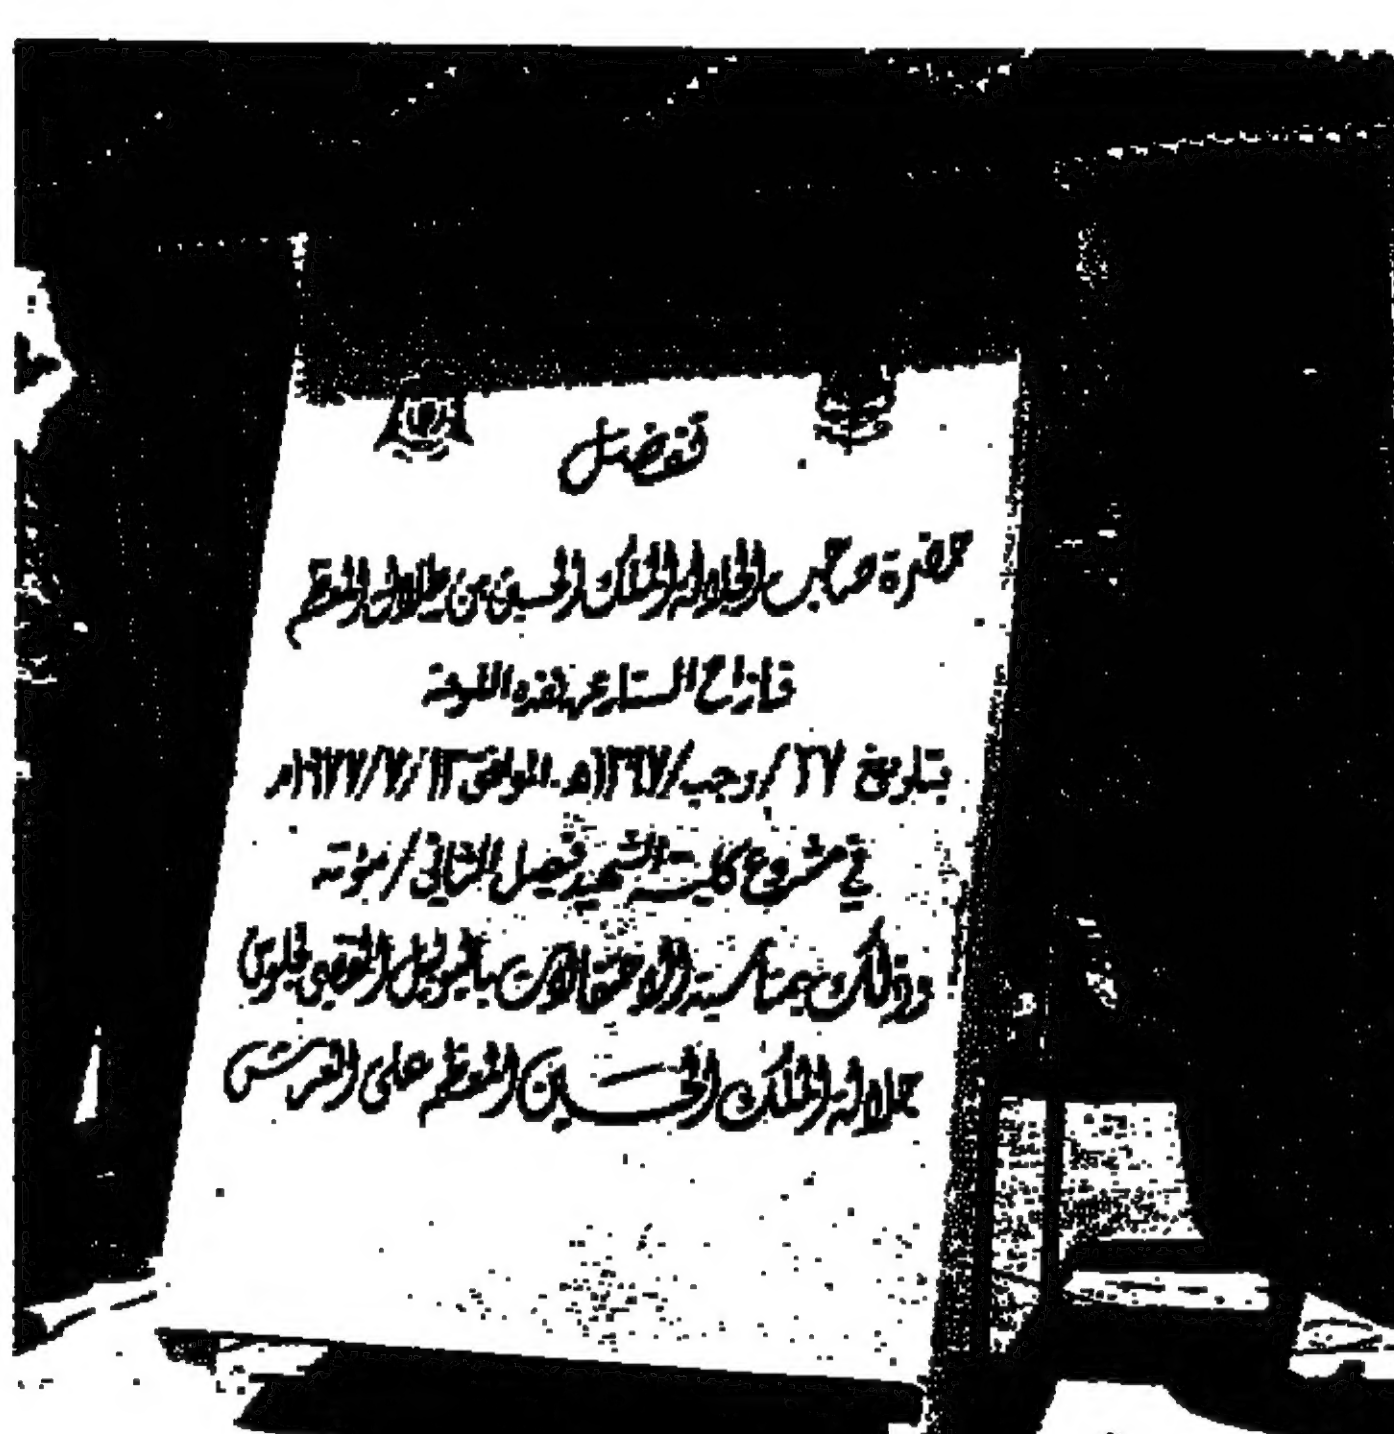 تفضل
حضرة صاحب الجلالة الملك الحسين بن طلال المعظم
فازاح الستار عن هذه اللوحة
بتاريخ ٢٧/رجب/١٣٩٧هـ الموافق ١٣/٧/١٩٧٧م
في مشروع كلية الشهيد فيصل الثاني/مؤتة
وذلك بمناسبة الاحتفالات باليوبيل الفضي لجلوس
جلالة الملك الحسين المعظم على العرش